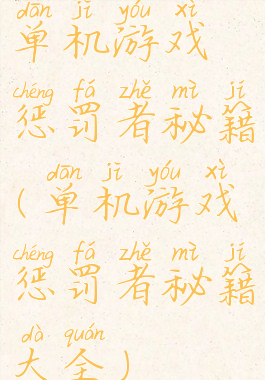 dān jī yóu xì
单机游戏
chéng fá zhě mì jí
惩罚者秘籍
dān jī yóu xì
(单机游戏
chéng fá zhě mì jí
惩罚者秘籍
dà quán
大全)